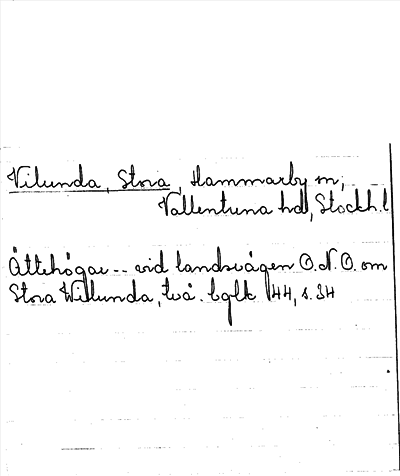 Vilunda, Stora, Hammarby sn,
Vallentuna hd, Stockh. l
Ättehögar -- vid landsvägen O.N.O. om
Stora Willunda, två. bglk 144, s. 34